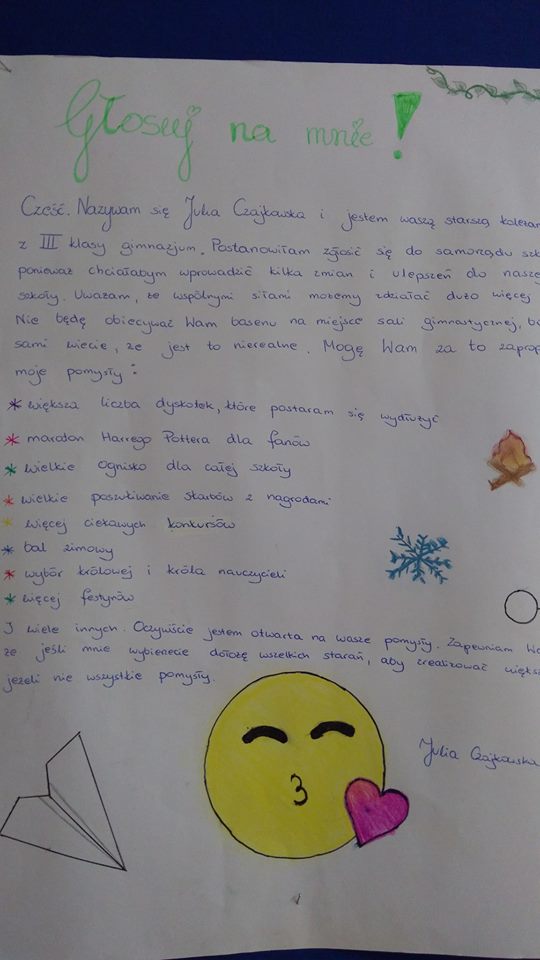 Głosuj na mnie!
Cześć. Nazywam się Julia Czajkowska i jestem waszą starszą koleżan
z III klasy gimnazjum. Postanowiłam zgłosić się do samorządu szk
ponieważ chciałabym wprowadzić kilka zmian i ulepszeń do nasze
szkoły. Uważam, że wspólnymi siłami możemy zdziałać dużo więcej
Nie będę obiecywać Wam basenu na miejsce sali gimnastycznej, bo
sami wiecie, że jest to nierealne. Mogę Wam za to zaprop
moje pomysły:
* większa liczba dyskotek, które postaram się wydłużyć
* maraton Harrego Pottera dla fanów
* wielkie ognisko dla całej szkoły
* wielkie poszukiwanie skarbów z nagrodami
* więcej ciekawych konkursów
* bal zimowy
* wybór królowej i króla nauczycieli
* więcej festynów
I wiele innych. Oczywiście jestem otwarta na wasze pomysły. Zapewniam Wa
że jeśli mnie wybierzecie dołożę wszelkich starań, aby zrealizować więks
jeżeli nie wszystkie pomysły.
Julia Czajkowska